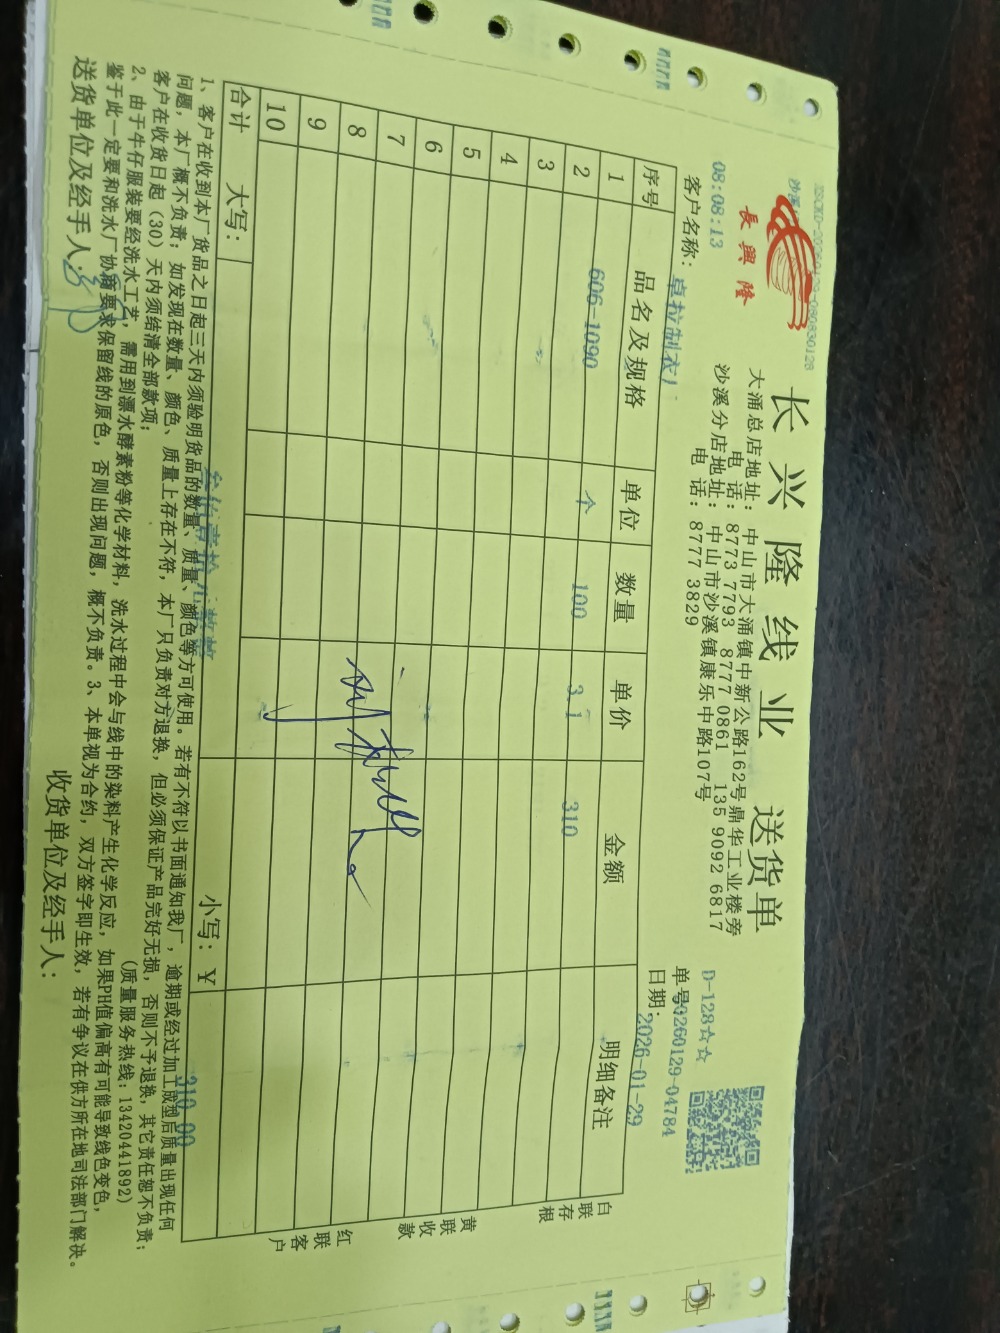 長興隆
长兴隆线业 送货单
大涌总店地址：中山市大涌镇中新公路162号鼎华工业楼旁
电 话：8773 7793 8777 0861 135 9092 6817
沙溪分店地址：中山市沙溪镇康乐中路107号
电 话：8777 3829
D-128☆☆
08:08:13
单号:20260129-04784
客户名称：卓拉制衣厂
日期：2026-01-29
序号 品名及规格 单位 数量 单价 金额 明细备注
1 606-1090 个 100 3.1 310
2
3
4
5
6
7
8
9
10
合计 大写：叁佰壹拾元整 小写：￥ 310.00
白联存根
黄联收款
红联客户
1、客户在收到本厂货品之日起三天内须验明货品的数量、质量、颜色等方可使用。若有不符以书面通知我厂，逾期或经过加工成型后质量出现任何
问题，本厂概不负责；如发现在数量、颜色、质量上存在不符，本厂只负责对方退换，但必须保证产品完好无损，否则不予退换，其它责任恕不负责；
客户在收货日起（30）天内须结清全部款项；
(质量服务热线：13420441892)
2、由于牛仔服装要经洗水工艺，需用到漂水酵素粉等化学材料，洗水过程中会与线中的染料产生化学反应，如果PH值偏高有可能导致线色变色，
鉴于此一定要和洗水厂协商要求保留线的原色，否则出现问题，概不负责。3、本单视为合约，双方签字即生效，若有争议在供方所在地司法部门解决。
送货单位及经手人：
收货单位及经手人：